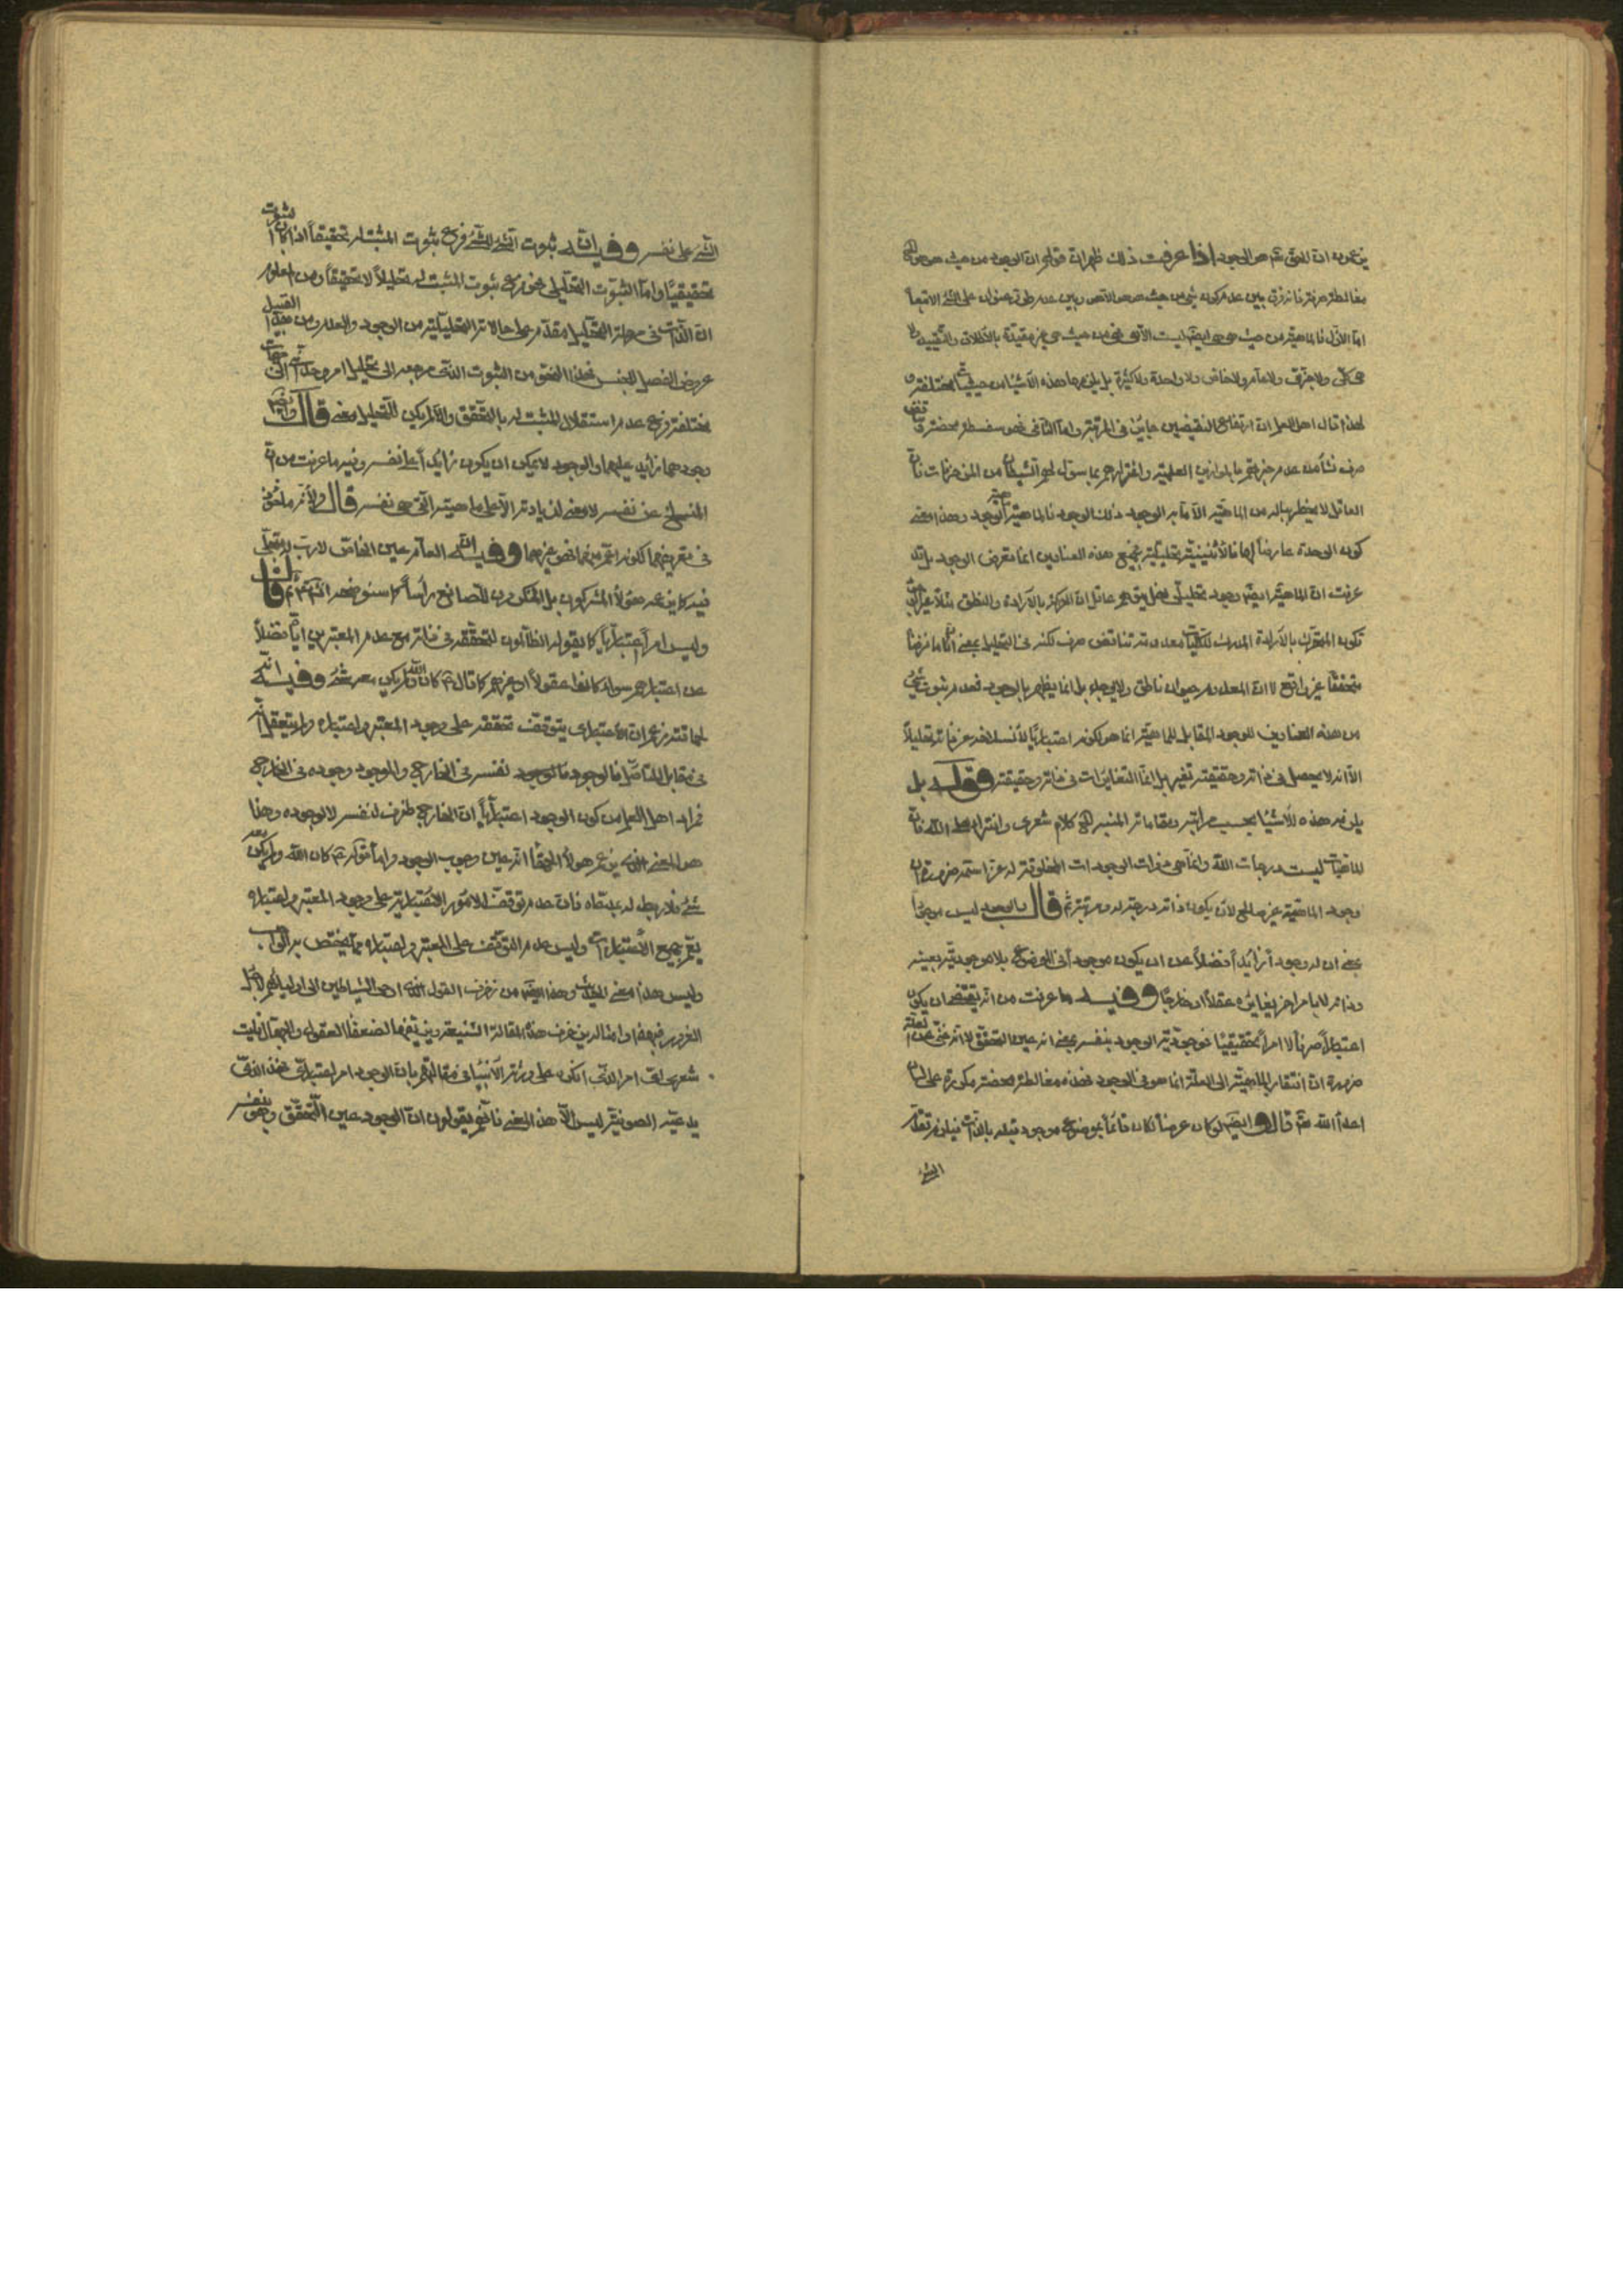 يزعمون ان الحق تم هو الوجود اذا عرفت ذلك ظهر ان قولهم ان الوجود من حيث هو هو
مغالطة فانه فرق بين عدم كونه شيء من حيث هو الا هو وبين عدم عنوان على الشيء
اما الاول فالماهية من حيث هي هي ايضا ليست الا هي فهي من حيث هي غير مقيدة بالاطلاق والتقييد لا
هي كلي ولا جزئي ولا عام ولا خاص ولا واحدة ولا كثيرة بل يلزمها هذه الاشياء من حيثيات مختلفة و
لهذا قال اهل العلم ان ارتفاع النقيضين جايز في المرتبة واما الثاني فهو سفسطة محضة
صرف نشأ من عدم خبرتهم بالموازين العلمية واغترارهم بما سول لهم الشيطان من المزخرفات فان
العاقل لا يخطر بباله من الماهية الا ما به الوجود ذلك الوجود فالماهية الوجود وهذا معنى
كون الوحدة عارضة لها فالاثنينية تحليلية فجميع هذه العناوين انما تعرض الوجود بل قد
عرفت ان الماهية ايضا وجود تحليلي فهل يتوهم عاقل ان التحرك بالارادة والنطق مثلا
تكون المتحرك بالارادة المدرك للكليات معدوم تناقض صرف لكنه في التحليل بمعنى
متحققا غير واقع لا ان المعدوم حيوان ناطق ولا يوجد بل انما يظهر بالوجود فعدم ثبوت شيء
من هذه العناوين للوجود المقابل للماهية انما هو لكونه اعتباريا
الا انه لا يحصل في ذاته وحقيقته تغير بل انما التغايرات في ذاته وحقيقته وقوله بل
يلزمه هذه الاشياء بحسب مراتبه ومقاماته المنبه الخ كلام شعري وافتراء على الله فان
الماهيات ليست درجات الله وانما هي ذوات الوجودات المخلوقة له عز اسمه ضرورة ان
وجود الماهية غير صالح لان يكون ذاته درجة له ومرتبة ثم قال والوجود ليس
بمعنى ان له وجودا زائدا فضلا عن ان يكون موجودا في الموضوع بل موجوديته بعينه
وذاته لا بامر اخر يغايره عقلا او خارجا وفيه ما عرفت من انه يقتضي ان يكون
اعتبارا صرفا لا امرا تحقيقيا فموجودية الوجود بنفسه بمعنى انه عين التحقق لا انه غني عن العلة
ضرورة ان افتقار الماهية الى العلة انما هو في الوجود فهذه مغالطة محضة مكررة على لسان
اعداء الله ثم قال وايضا لو كان عرضا لكان قائما بموضوع موجود قبله بالذات فيلزم تقدم
الشيء
الشيء على نفسه وفيه ان ثبوت الشيء للشيء فرع ثبوت المثبت له تحقيقا اذا كان الثبوت
تحقيقيا واما الثبوت التحليلي فهو فرع ثبوت المثبت له تحليلا لا تحقيقا ومن المعلوم
ان الذات في مرحلة التحليل مقدم على حالاته التحليلية من الوجود والعدم ومن هذا القبيل
عروض الفصل للجنس فهذا النحو من الثبوت الذي مرجعه الى تحليل امر وحداني الى جهات
مختلفة فرع عدم استقلال المثبت له بالتحقق والا لم يكن للتحليل معنى قال وايضا
وجودهما زايد عليهما والوجود لا يمكن ان يكون زايدا على نفسه وفيه ما عرفت من ان
المنسلخ عن نفسه لا معنى لزيادته الا على ماهيته التي هي نفسه قال ولانه ماخوذ
في تعريفهما لكونه اعم منهما فهو غيرهما وفيه ان العام عين الخاص
فيه كاين عند هؤلاء المشركون بل المنكرون للصانع راسا كما سنوضحه انش تم ثم قال
وليس امرا اعتباريا كما يقوله الظالمون لتحققه في ذاته مع عدم المعتبرين اياه فضلا
عن اعتبارهم سواء كانوا عقولا او غيرهم كما قال ع كان الله ولم يكن معه شيء وفيه انه
لحماقته زعم ان الاعتباري يتوقف تحققه على وجود المعتبر واعتباره ولم يتعقل انه
في مقابل المتاصل فالوجود نفسه في الخارج والموجود وجوده في الخارج
فمراد اهل العلم من كون الوجود اعتباريا ان الخارج ظرف لنفسه لا لوجوده وهذا
هو المعنى الذي يزعم هؤلاء الحمقاء انه عين وجوب الوجود واما قوله ع كان الله ولم يكن معه
شيء فلا ربط له بمدعاه فان عدم توقف الامور الاعتبارية على وجود المعتبر واعتباره
يعم جميع الاعتباريات وليس عدم التوقف على المعتبر واعتباره مما يختص به الواجب
وليس هذا معنى الحديث وهذا ايضا من زخرف القول الذي اوحى الشياطين الى اوليائهم لاجل
الغرور فبهذا وامثاله زخرف هذه المقالة الشنيعة وزينها لضعفاء العقول والجهال فليت
شعري اي امر الذي انكره على ورثة الانبياء في مقالتهم بان الوجود امر اعتباري فهذا الذي
يدعيه الصوفية ليس الا هذا المعنى فانهم يقولون ان الوجود عين التحقق وهو بنفسه